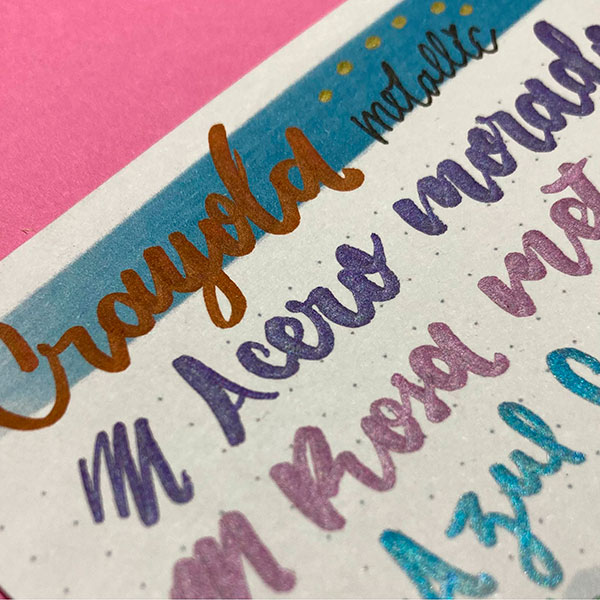 Crayola
metallic
Acero morado
Rosa met
Azul